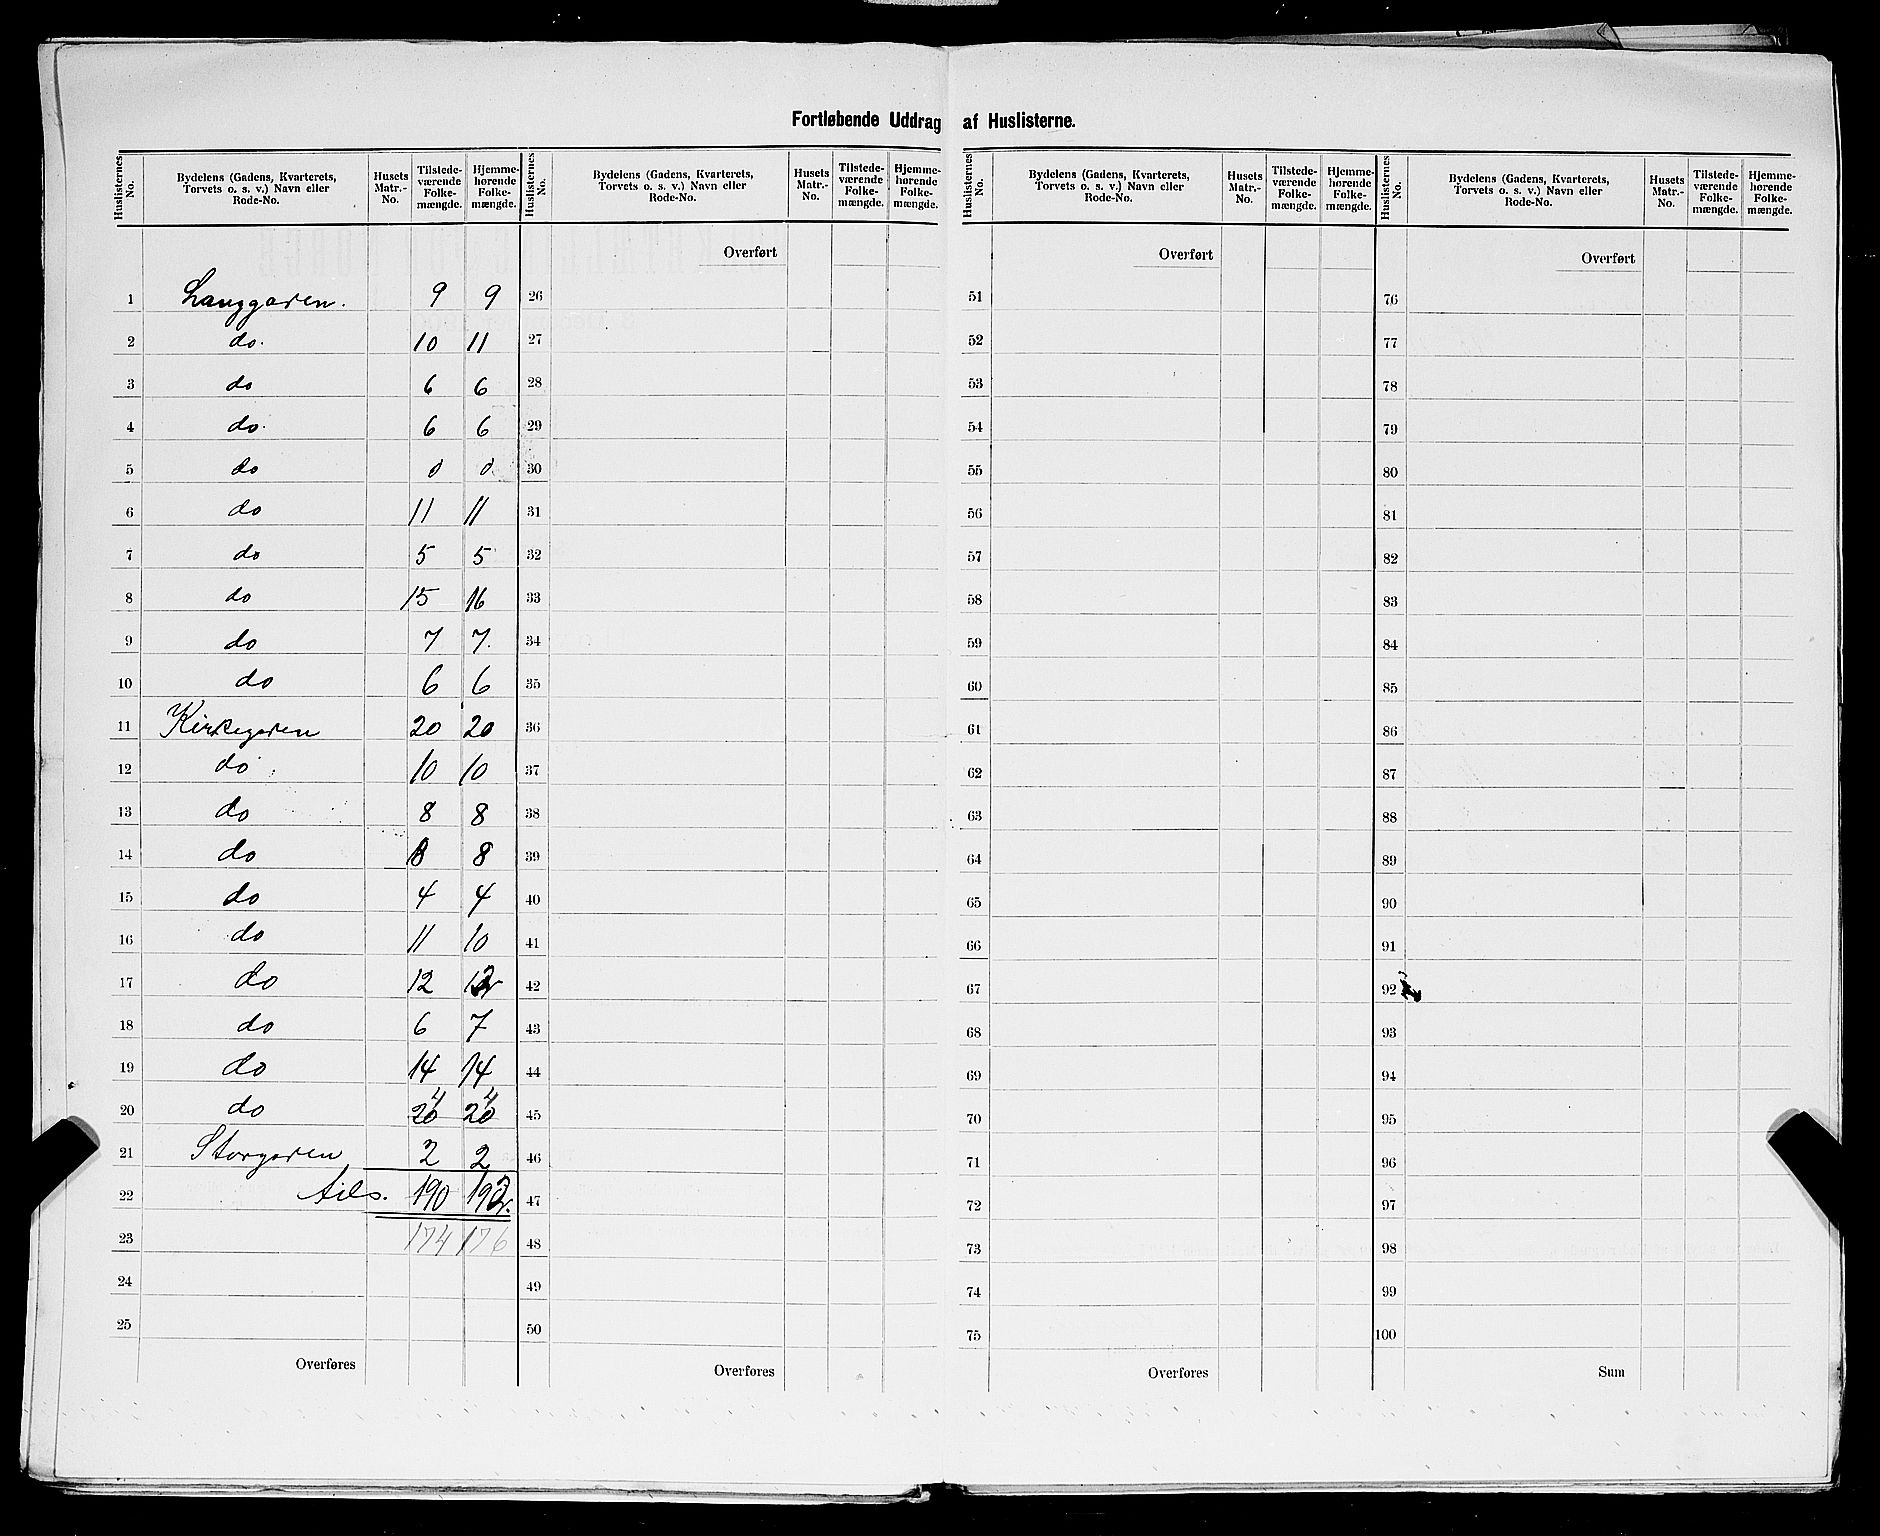 Fortløbende Uddrag af Huslisterne.
Huslisternes No. | Bydelens (Gadens, Kvarterets, Torvets o. s. v.) Navn eller Rode-No. | Husets Matr.-No. | Tilstedeværende Folkemængde. | Hjemmehørende Folkemængde.
Huslisternes No. | Bydelens (Gadens, Kvarterets, Torvets o. s. v.) Navn eller Rode-No. | Husets Matr.-No. | Tilstedeværende Folkemængde. | Hjemmehørende Folkemængde.
Huslisternes No. | Bydelens (Gadens, Kvarterets, Torvets o. s. v.) Navn eller Rode-No. | Husets Matr.-No. | Tilstedeværende Folkemængde. | Hjemmehørende Folkemængde.
Huslisternes No. | Bydelens (Gadens, Kvarterets, Torvets o. s. v.) Navn eller Rode-No. | Husets Matr.-No. | Tilstedeværende Folkemængde. | Hjemmehørende Folkemængde.
Overført Overført Overført
1 Langgaren. 9 9 26 51 76
2 do. 10 11 27 52 77
3 do 6 6 28 53 78
4 do. 6 6 29 54 79
5 do 0 0 30 55 80
6 do 11 11 31 56 81
7 do 5 5 32 57 82
8 do 15 16 33 58 83
9 do 7 7. 34 59 84
10 do 6 6 35 60 85
11 Kirkegaren 20 20 36 61 86
12 do 10 10 37 62 87
13 do 8 8 38 63 88
14 do 8 8 39 64 89
15 do 4 4 40 65 90
16 do 11 10 41 66 91
17 do 12 12 42 67 92
18 do 6 7 43 68 93
19 do 14 14 44 69 94
4 4
20 do 20 20 45 70 95
21 Storgaren 2 2 46 71 96
22 Tils. 190 192 47 72 97
23 174 176 48 73 98
24 49 74 99
25 50 75 100
Overføres Overføres Overføres Sum